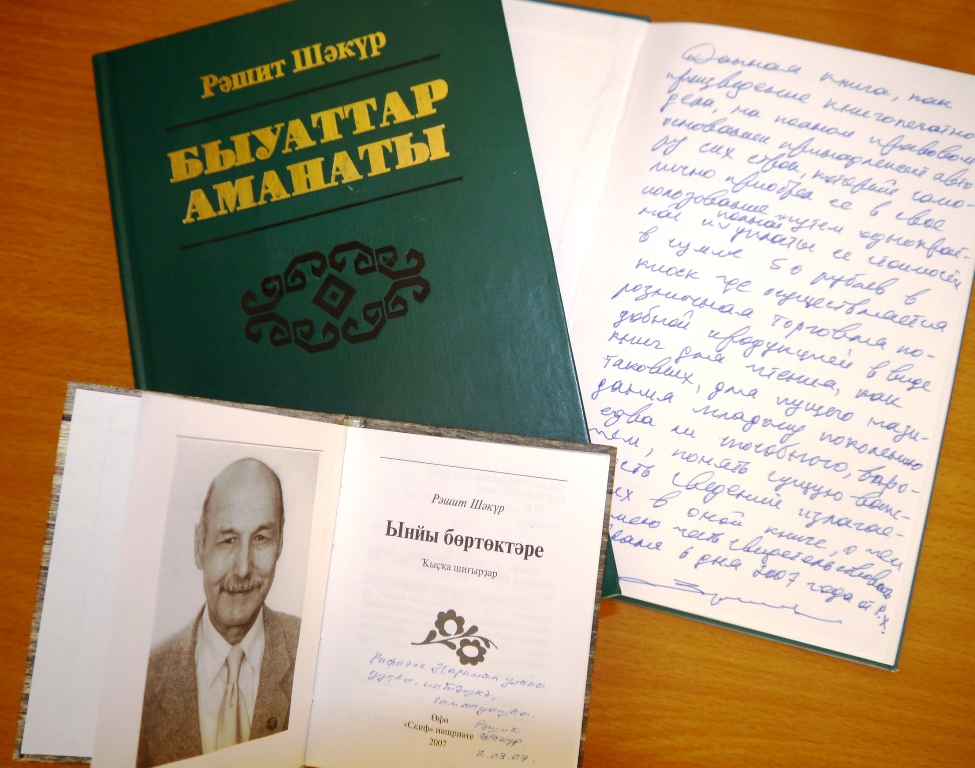 Рәшит Шәкүр
БЫУАТТАР
АМАНАТЫ
Данная книга, как
произведение книгопечатно
дела, на полном правовом
основании принадлежит авто
ру сих строк, который само
лично приобрёл её в своё
пользование путём однократ-
ной полной уплаты её стоимости
в сумме 50 рублей в
киоск где осуществляется
розничная торговля по-
добной продукцией в виде
книг для чтения, как
таковых, для пущего нази-
дания младому поколению
едва ли способного, впро-
чем, понять сущую
сведений излагае-
в оной книге, о чём
имею честь свидетельствовать
6 дня 2007 года от Р.Х.
Рәшит Шәкүр
Ынйы бөртөктәре
Ҡыҫҡа шиғырҙар
Өфө
«Скиф» нәшриәте
2007
Рәшит
Шәкүр.
2.03.07.